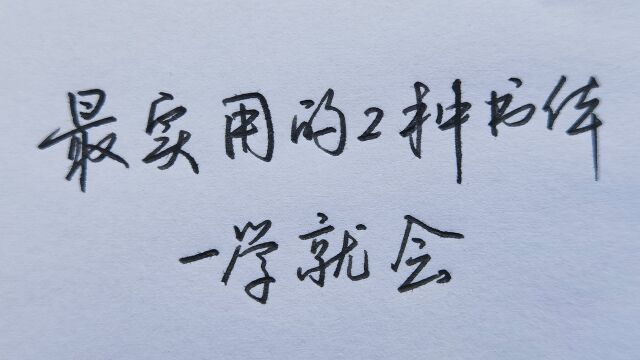 最实用的2种书体
一学就会